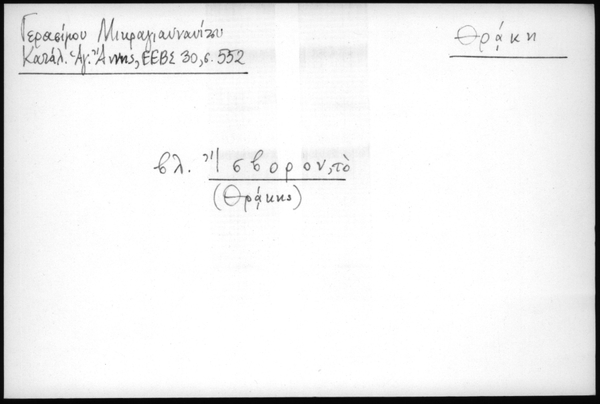 Γερασίμου Μικραγιαννανίτου
Κατάλ. Ἁγ. Ἄννης, ΕΕΒΣ 30, σ. 552
Θράκη
βλ. Ἴσβορον, τὸ
(Θράκης)